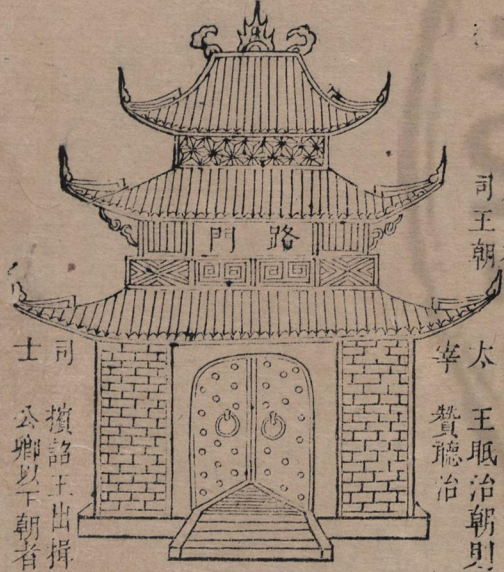 司王朝
太宰
王眡治朝則
贊聽治
路門
司士
擯詔王出揖
公卿以下朝者